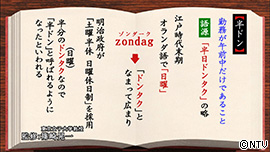 【半ドン】
勤務が午前中だけであること
語源 「半日ドンタク」の略
江戸時代末期
オランダ語で「日曜」
ゾンターク
zondag
「ドンタク」と
なまって広まり
明治政府が
「土曜半休 日曜休日制」を採用
(日曜)
半分のドンタクなので
「半ドン」と呼ばれるように
なったといわれる
©NTV